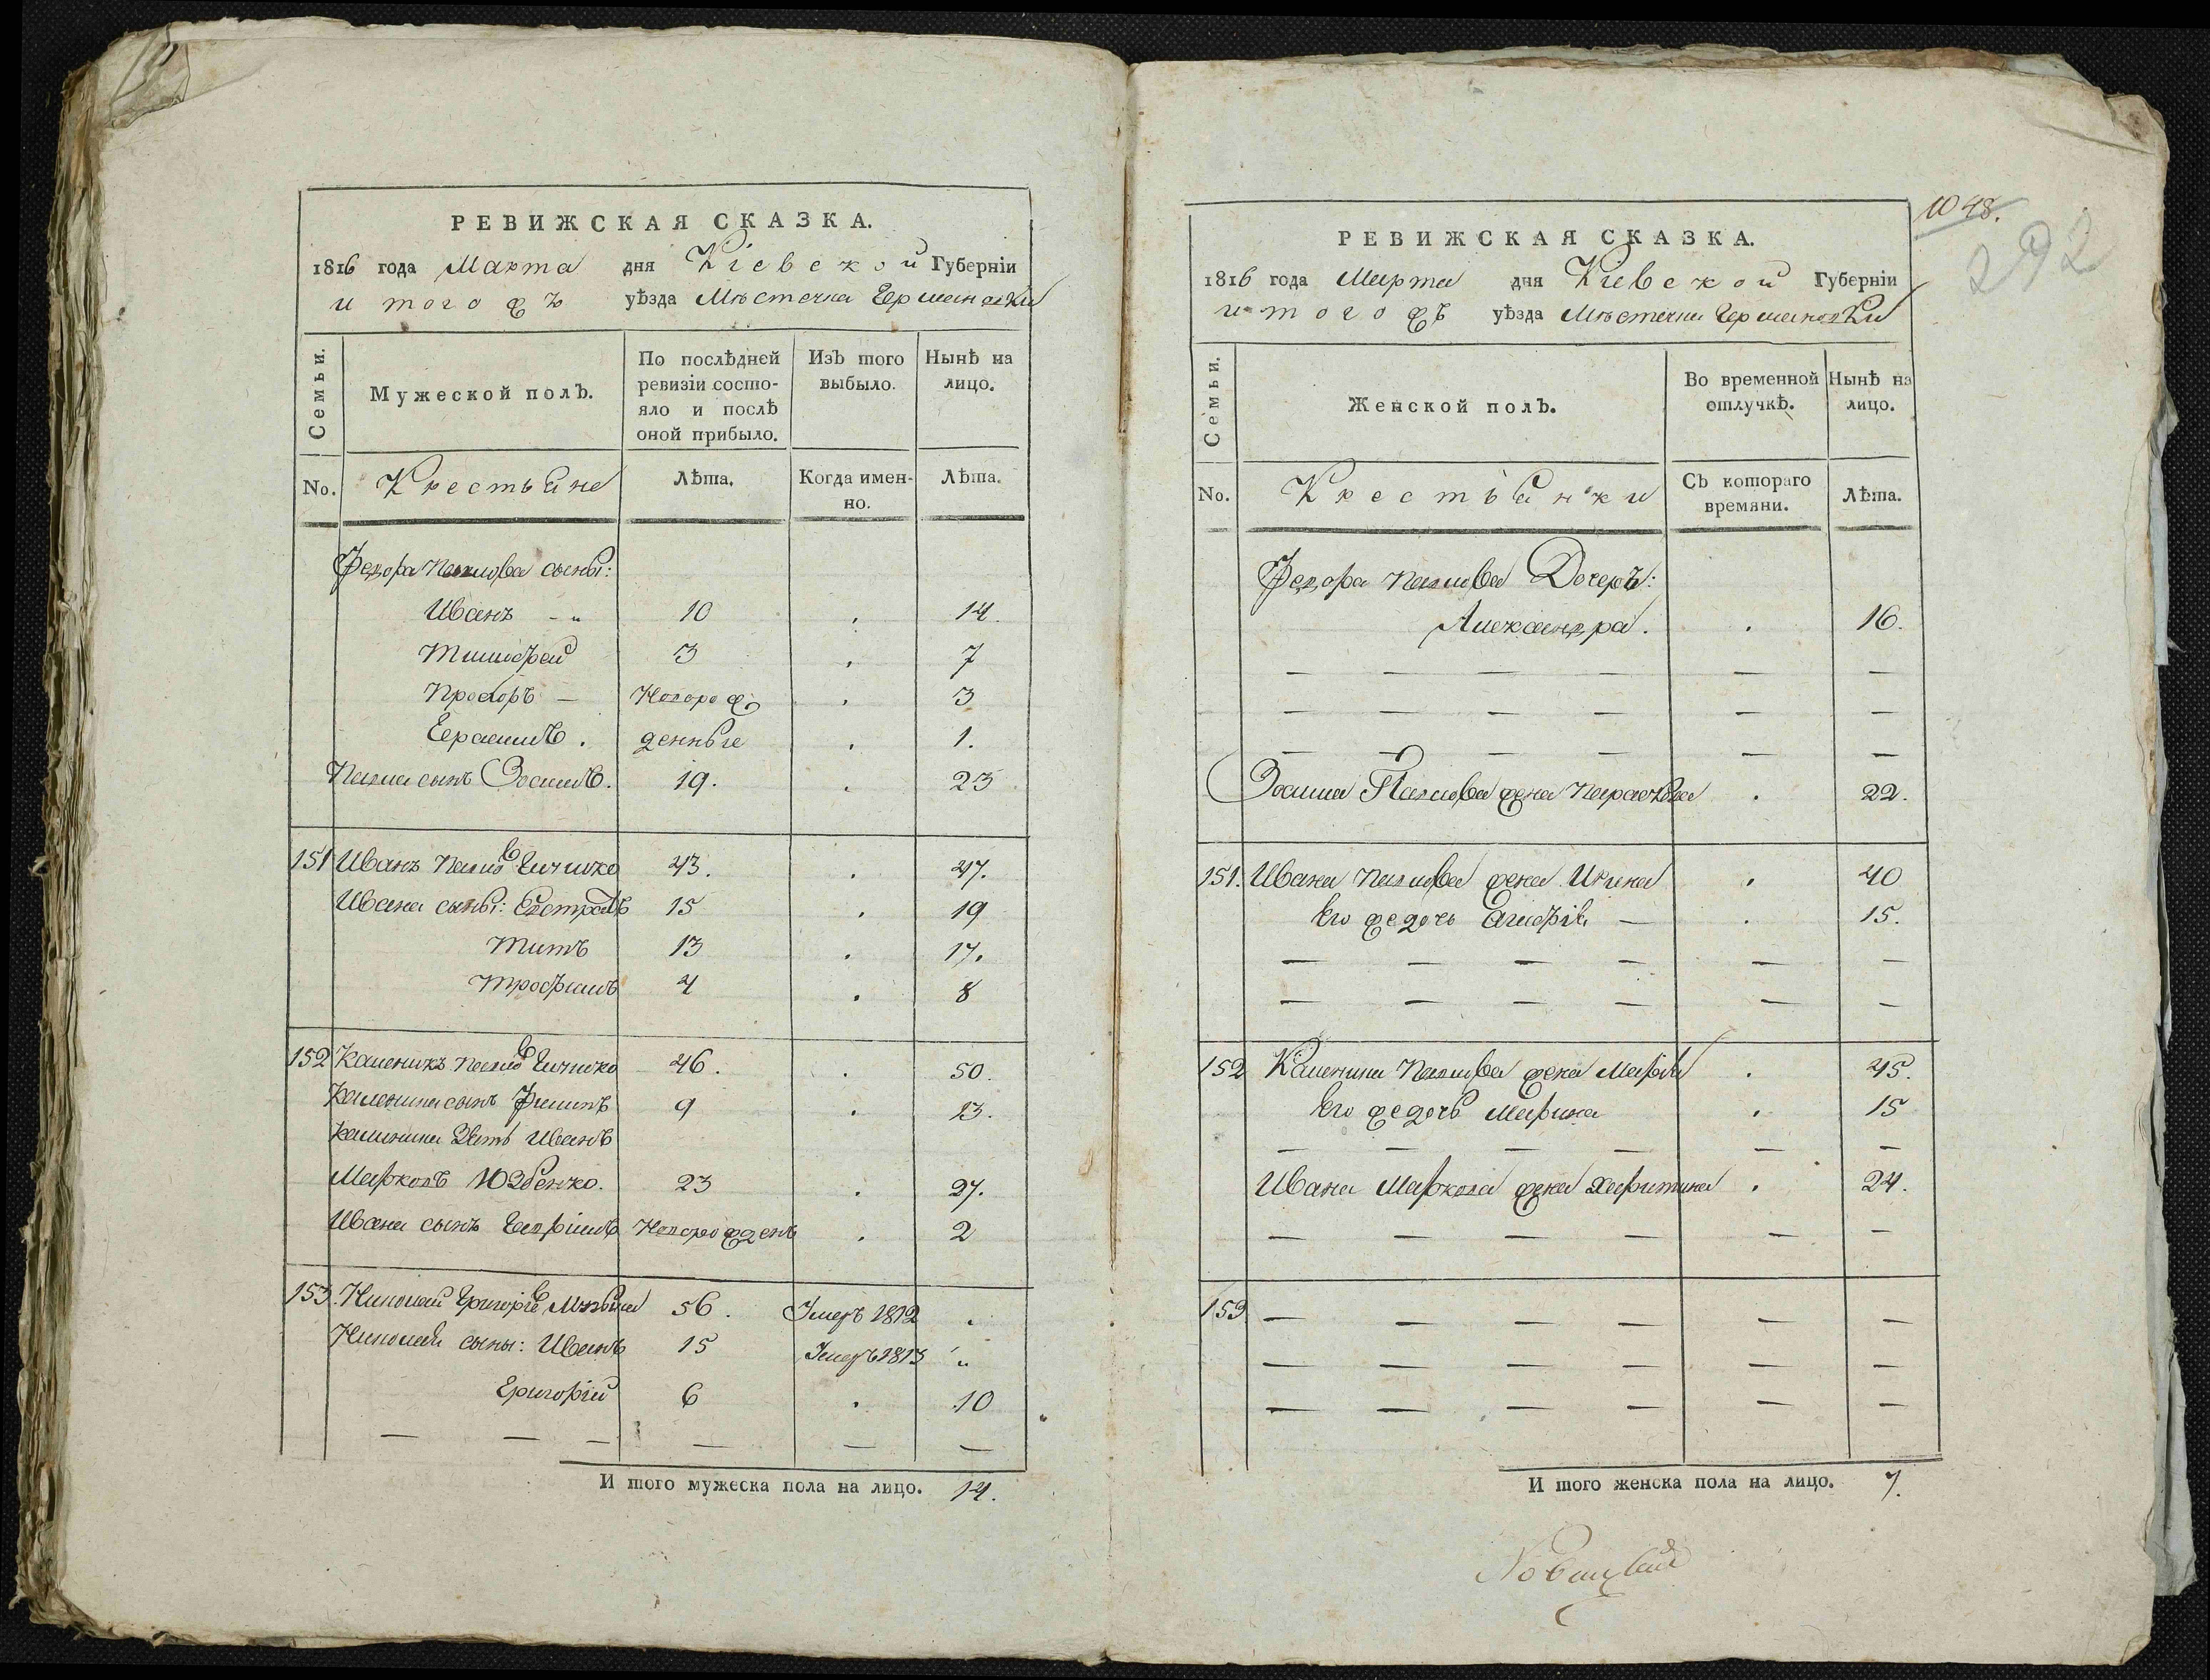 РЕВИЖСКАЯ СКАЗКА.
1816 года Марта дня Кіевской Губерніи
и того жъ уѣзда Мѣстечка Германовки
Семьи.
Мужеской полъ.
По послѣдней ревизіи состо-
яло и послѣ
оной прибыло.
Изъ того
выбыло.
Нынѣ на
лицо.
No.
Крестьяне
Лѣта.
Когда имен-
но.
Лѣта.
Федора Павлова сыны:
Иванъ 10 14.
Тимофей 3 7
Прохоръ — Новорож 3
Герасимъ . денные 1.
Павла сынъ Зосимъ. 19. 23
151 Иванъ Павловъ 43. 47.
Ивана сыны: Евстратъ 15 19
Титъ 13 17.
Трофимъ 4 8
152 Каленикъ Павловъ 46. 50.
Каленика сынъ Филипъ 9 13.
Каленика Зять Иванъ
Марковъ 23 27.
Ивана сынъ Новорожденъ 2
153. Николай Григорьевъ 56. Умеръ 1812
Николая сыны: Иванъ 15 Умеръ 1813
Григорій 6 10
— — — — — —
И того мужеска пола на лицо. 14.
1048.
292
РЕВИЖСКАЯ СКАЗКА.
1816 года Марта дня Кіевской Губерніи
и того жъ уѣзда Мѣстечка Германовки
Семьи.
Женской полъ.
Во временной
отлучкѣ.
Нынѣ на
лицо.
No.
Крестьянки
Съ котораго
времяни.
Лѣта.
Федора Павлова Дочеръ:
Александра. 16.
— — — — — —
— — — — — —
— — — — — —
Зосима Павлова жена Параскева 22.
151. Ивана Павлова жена Ирина 40
Его же дочь 15.
— — — — — —
— — — — — —
152 Каленика Павлова жена Марія 45.
Его же дочь Марина 15
— — — — — —
Ивана Маркова жена Харитина 24.
— — — — — —
153 — — — — — —
— — — — — —
— — — — — —
И того женска пола на лицо. 7.